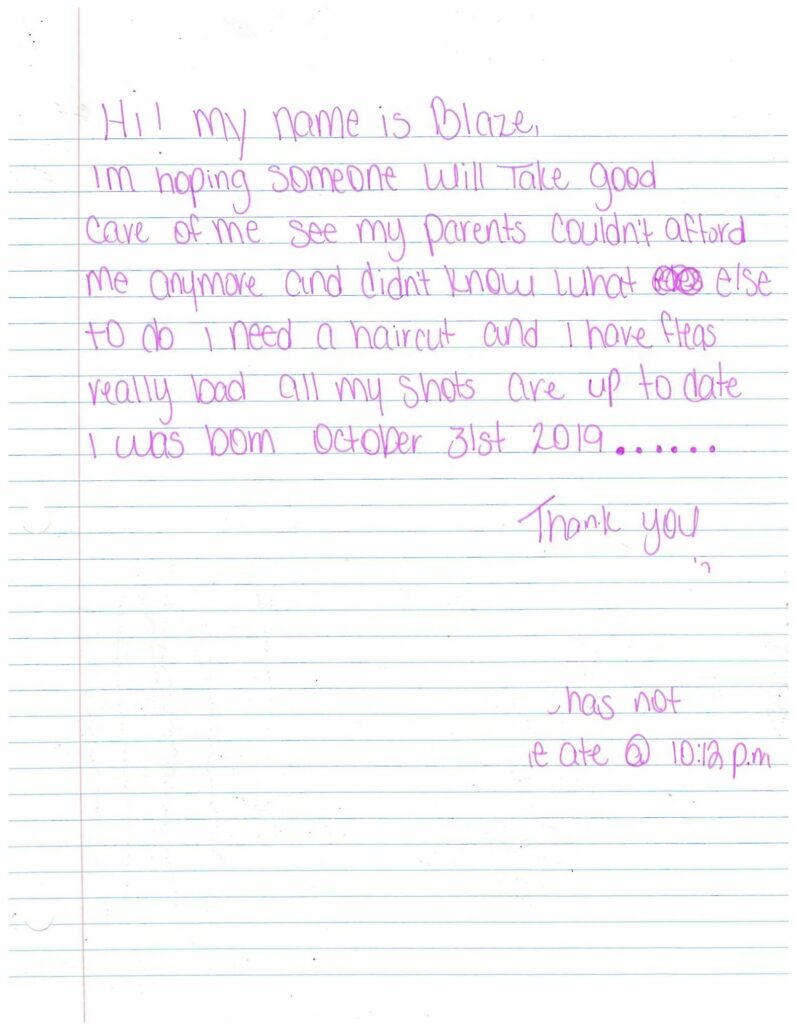 Hi! my name is Blaze,
Im hoping someone will Take good
care of me see my parents couldn't afford
me anymore and didn't know what else
to do I need a haircut and I have fleas
really bad all my shots are up to date
I was born October 31st 2019......
Thank you
has not
ate @ 10:12 p.m